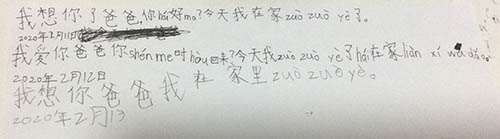 我想你了爸爸,你hái好ma?今天我在家zuò zuò yè了。
2020年2月11日
我爱你爸爸你shén me时hòu回来?今天我zuò zuò yè了hái在家liàn xí
2020年2月12日
我想你爸爸我在家里zuò zuò yè。
2020年2月13